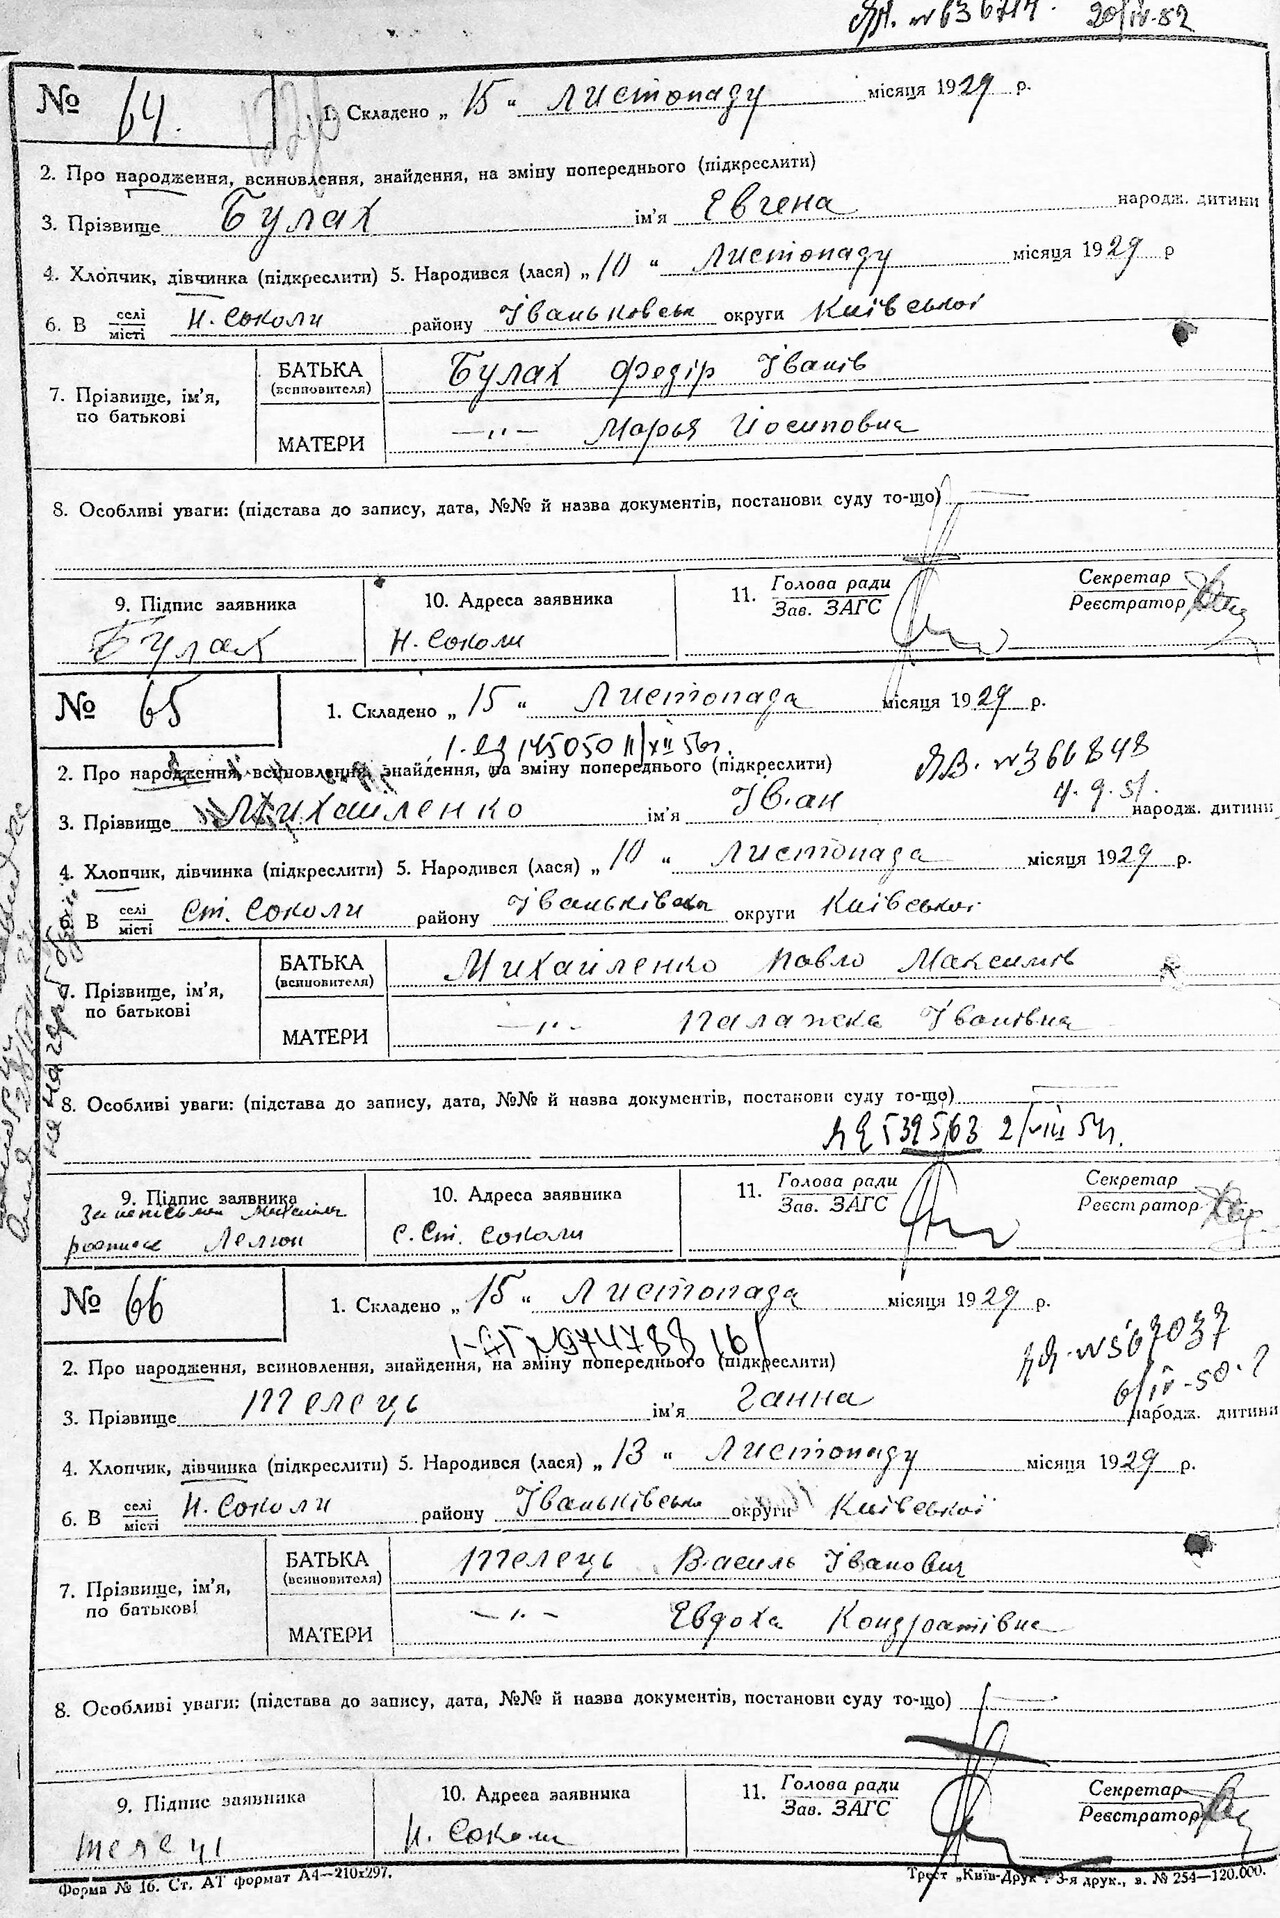 20/IV-52
№ 64.
1. Складено „ 15 “ Листопаду місяця 1929 р.
2. Про народження, всиновлення, знайдення, на зміну попереднього (підкреслити)
3. Прізвище Булах ім’я Евгена народж. дитини
4. Хлопчик, дівчинка (підкреслити) 5. Народився (лася) „ 10 “ Листопаду місяця 1929 р
6. В селі місті Н. Соколи району Іваньковськ округи Київської
7. Прізвище, ім’я, по батькові
БАТЬКА (всиновителя) Булах Федір Іванів
МАТЕРИ —"— Марья Йосиповна
8. Особливі уваги: (підстава до запису, дата, №№ й назва документів, постанови суду то-що)
9. Підпис заявника
Булах
10. Адреса заявника
Н. Соколи
11. Голова ради
Зав. ЗАГС
Секретар
Реєстратор
№ 65
1. Складено „ 15 “ Листопада місяця 1929 р.
145050 11/XII 56г.
2. Про народження, всиновлення, знайдення, на зміну попереднього (підкреслити)
№366848
4.9.51.
3. Прізвище Михайленко ім’я Іван народж. дитини
4. Хлопчик, дівчинка (підкреслити) 5. Народився (лася) „ 10 “ Листопада місяця 1929 р.
6. В селі місті Ст. Соколи району Іваньківськ округи Київської
7. Прізвище, ім’я, по батькові
БАТЬКА (всиновителя) Михайленко Павло Максимів
МАТЕРИ —"— Палажка Іванівна
8. Особливі уваги: (підстава до запису, дата, №№ й назва документів, постанови суду то-що)
539563 2/VIII 54г.
9. Підпис заявника
10. Адреса заявника
с. Ст. Соколи
11. Голова ради
Зав. ЗАГС
Секретар
Реєстратор
№ 66
1. Складено „ 15 “ Листопада місяця 1929 р.
2. Про народження, всиновлення, знайдення, на зміну попереднього (підкреслити)
№567037
3. Прізвище Телець ім’я Ганна народж. дитини
4. Хлопчик, дівчинка (підкреслити) 5. Народився (лася) „ 13 “ Листопаду місяця 1929 р.
6. В селі місті Н. Соколи району Іваньківськ округи Київської
7. Прізвище, ім’я, по батькові
БАТЬКА (всиновителя) Телець Василь Іванович
МАТЕРИ —"— Евдоха Кондратівна
8. Особливі уваги: (підстава до запису, дата, №№ й назва документів, постанови суду то-що)
9. Підпис заявника
10. Адреса заявника
Н. Соколи
11. Голова ради
Зав. ЗАГС
Секретар
Реєстратор
Форма № 16. Ст. АТ формат А4—210х297.
Трест „Київ-Друк“. 3-я друк., в. № 254—120.000.